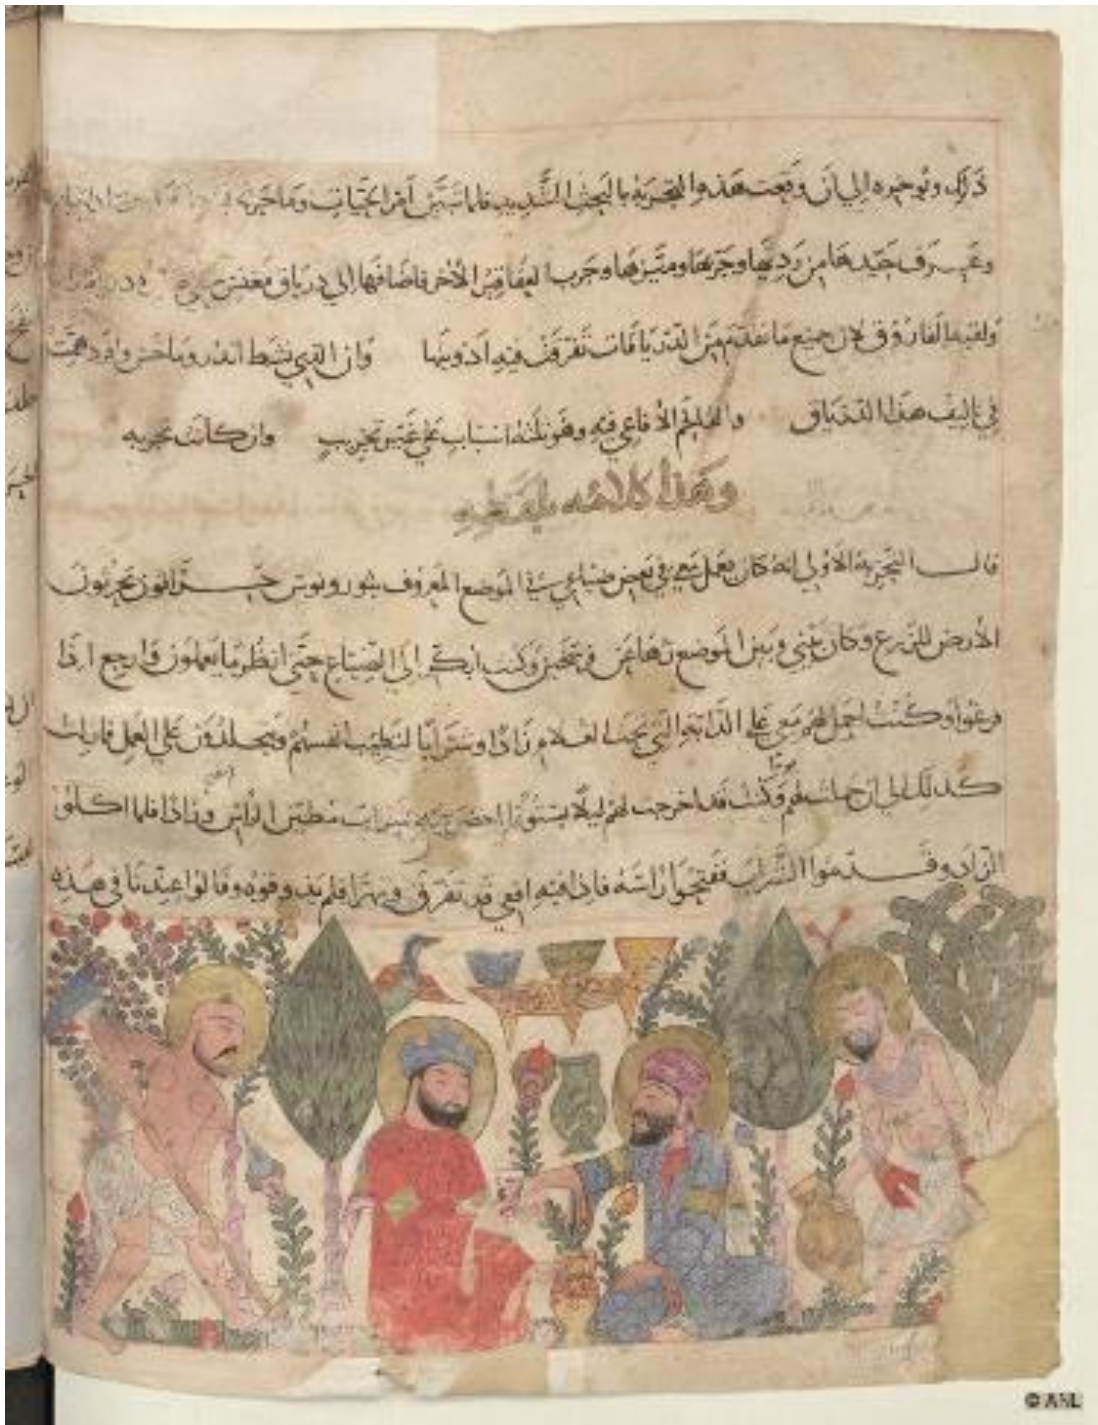 ذلك ويوخره الي ان وقعت هذه التجربة بالبحث الشديد فلما تبين أمر الحيات وما جربه
وعرف جيدها من رديها وجربها وميزها وجرب العقاقير الأخر فاضافها إلي درياق مغنس
ولقبها الفاروق لان جميع ما تقدم من الدرياقات تفرقت فيه ادويتها وان الذي نشط اندروماخس واوردهمته
في تاليف هذا الدرياق والحلحم الأفاعي فيه وهو ثلثة اسباب علي غير تجريب وان كانت تجربه
وهذا كلامه بلفظه
قال التجربة الأولي انه كان يعمل معي في بعض ضياعي في الموضع المعروف بثورونوس حراثون يحرثون
الأرض للزرع وكان بيني وبين الموضع نحو من فرسخين وكنت ابكر الي الضياع حتي انظر ما يعملون وارجع اذا
فرغوا وكنت احمل لهم معي علي الدابة التي تحت الغلام زادا وشرابا لتطيب انفسهم ويتجلدون علي العمل فما زلت
كذلك إلي ان حملت لهم يوما وكنت قد اخرجت لهم شراب مطين الراس وزادا فلما اكلوا
الزاد وقدموا الشراب ففتحوا راسه فاذا فيه افعي قد تفرق وتهرا فلم يذوقوه وقالوا عندنا في هذه
© ANL